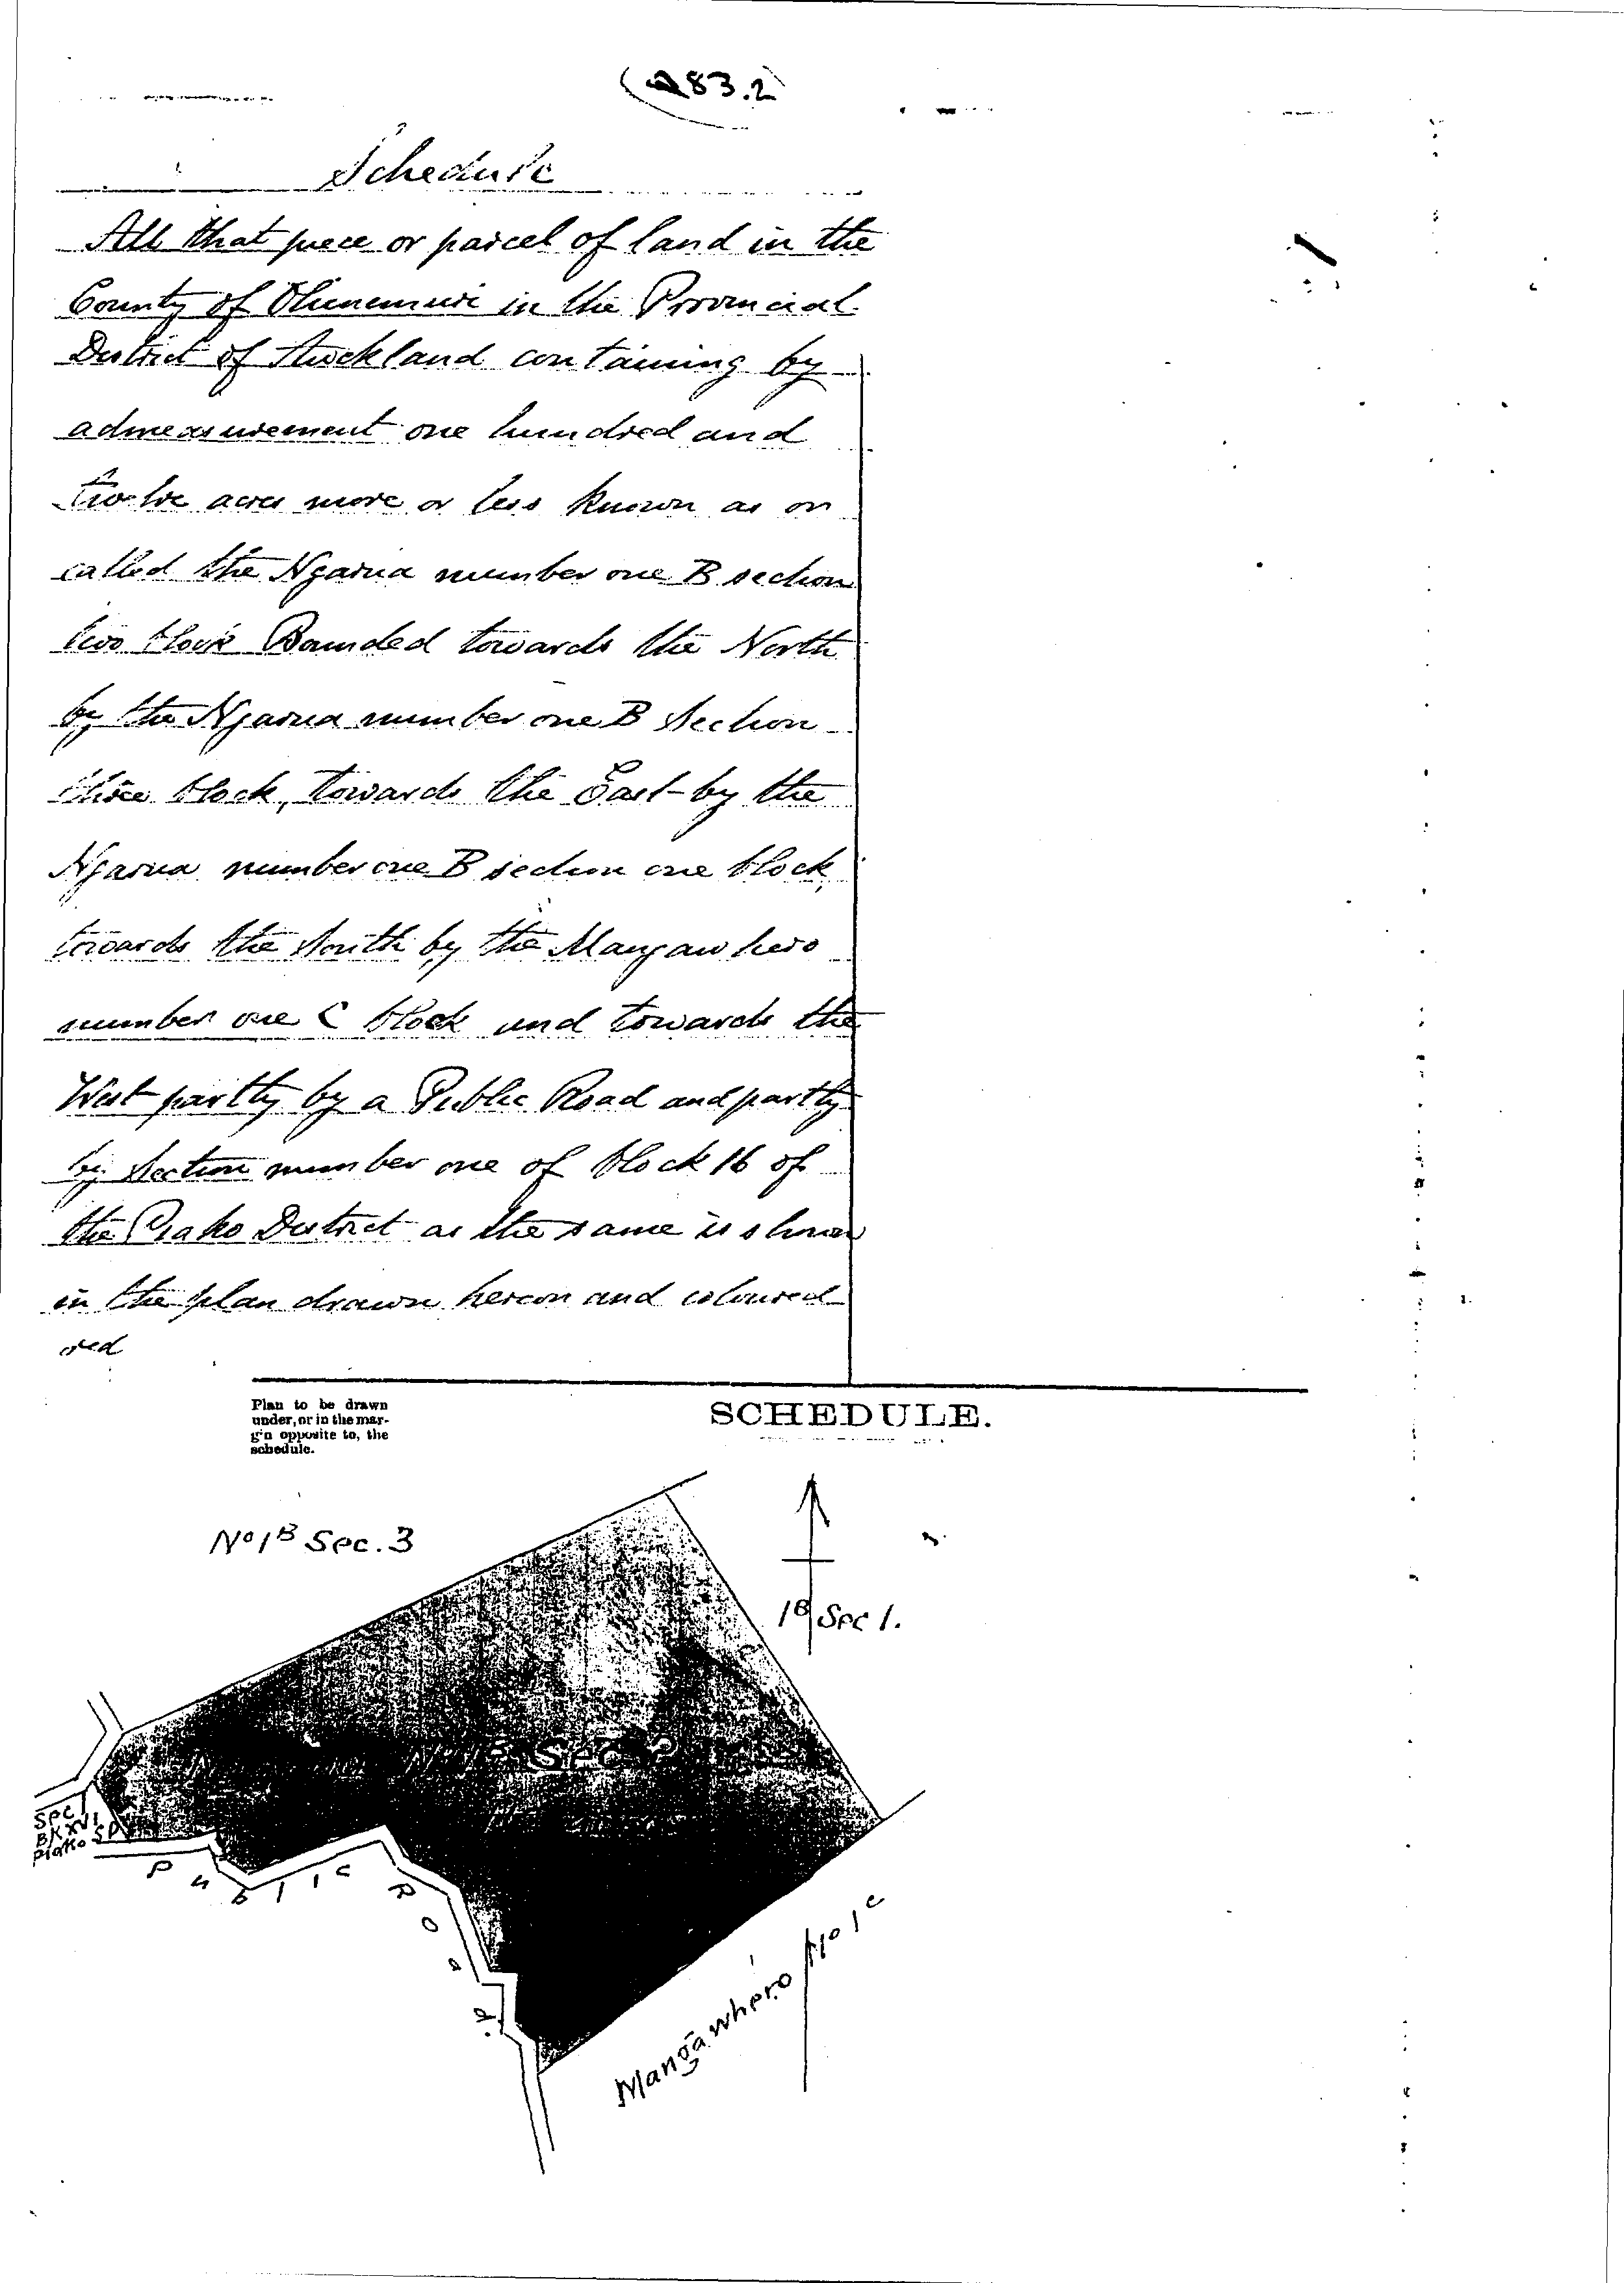 283.2
Schedule
All that piece or parcel of land in the
County of Ohinemuri in the Provincial
District of Auckland containing by
admeasurement one hundred and
twelve acres more or less known as or
called the Ngarua number one B section
two block Bounded towards the North
by the Ngarua number one B Section
three block, towards the East by the
Ngarua number one B section one block
towards the South by the Mangawhero
number one C block and towards the
West partly by a Public Road and partly
by Section number one of block 16 of
the Piako District as the same is shown
in the plan drawn hereon and coloured
red
Plan to be drawn
under, or in the mar-
gin opposite to, the
schedule.
SCHEDULE.
No 1B Sec. 3
1B Sec 1.
No 1B Sec 2
Sec 1
BK XVI
Piako SD
Public Road
Mangawhero No 1C